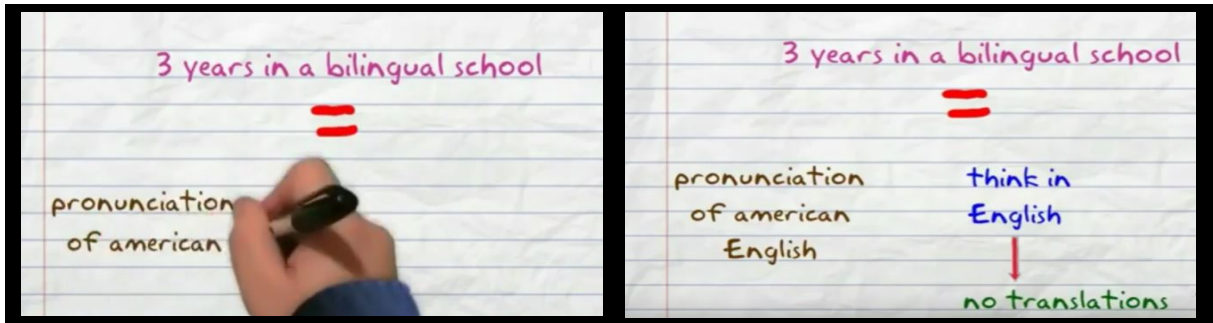 3 years in a bilingual school
=
pronunciation
of american
3 years in a bilingual school
=
pronunciation
of american
English
think in
English
no translations